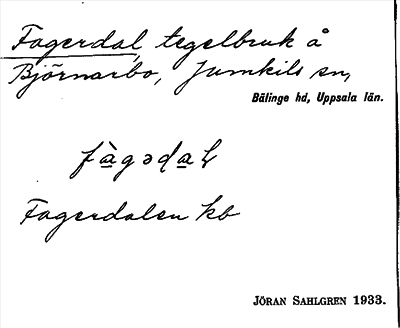 Fagerdal, tegelbruk å
Björnarbo, Jumkils sn,
Bälinge hd, Uppsala län.
fàgədaɫ
Fagerdalen kb
JÖRAN SAHLGREN 1933.